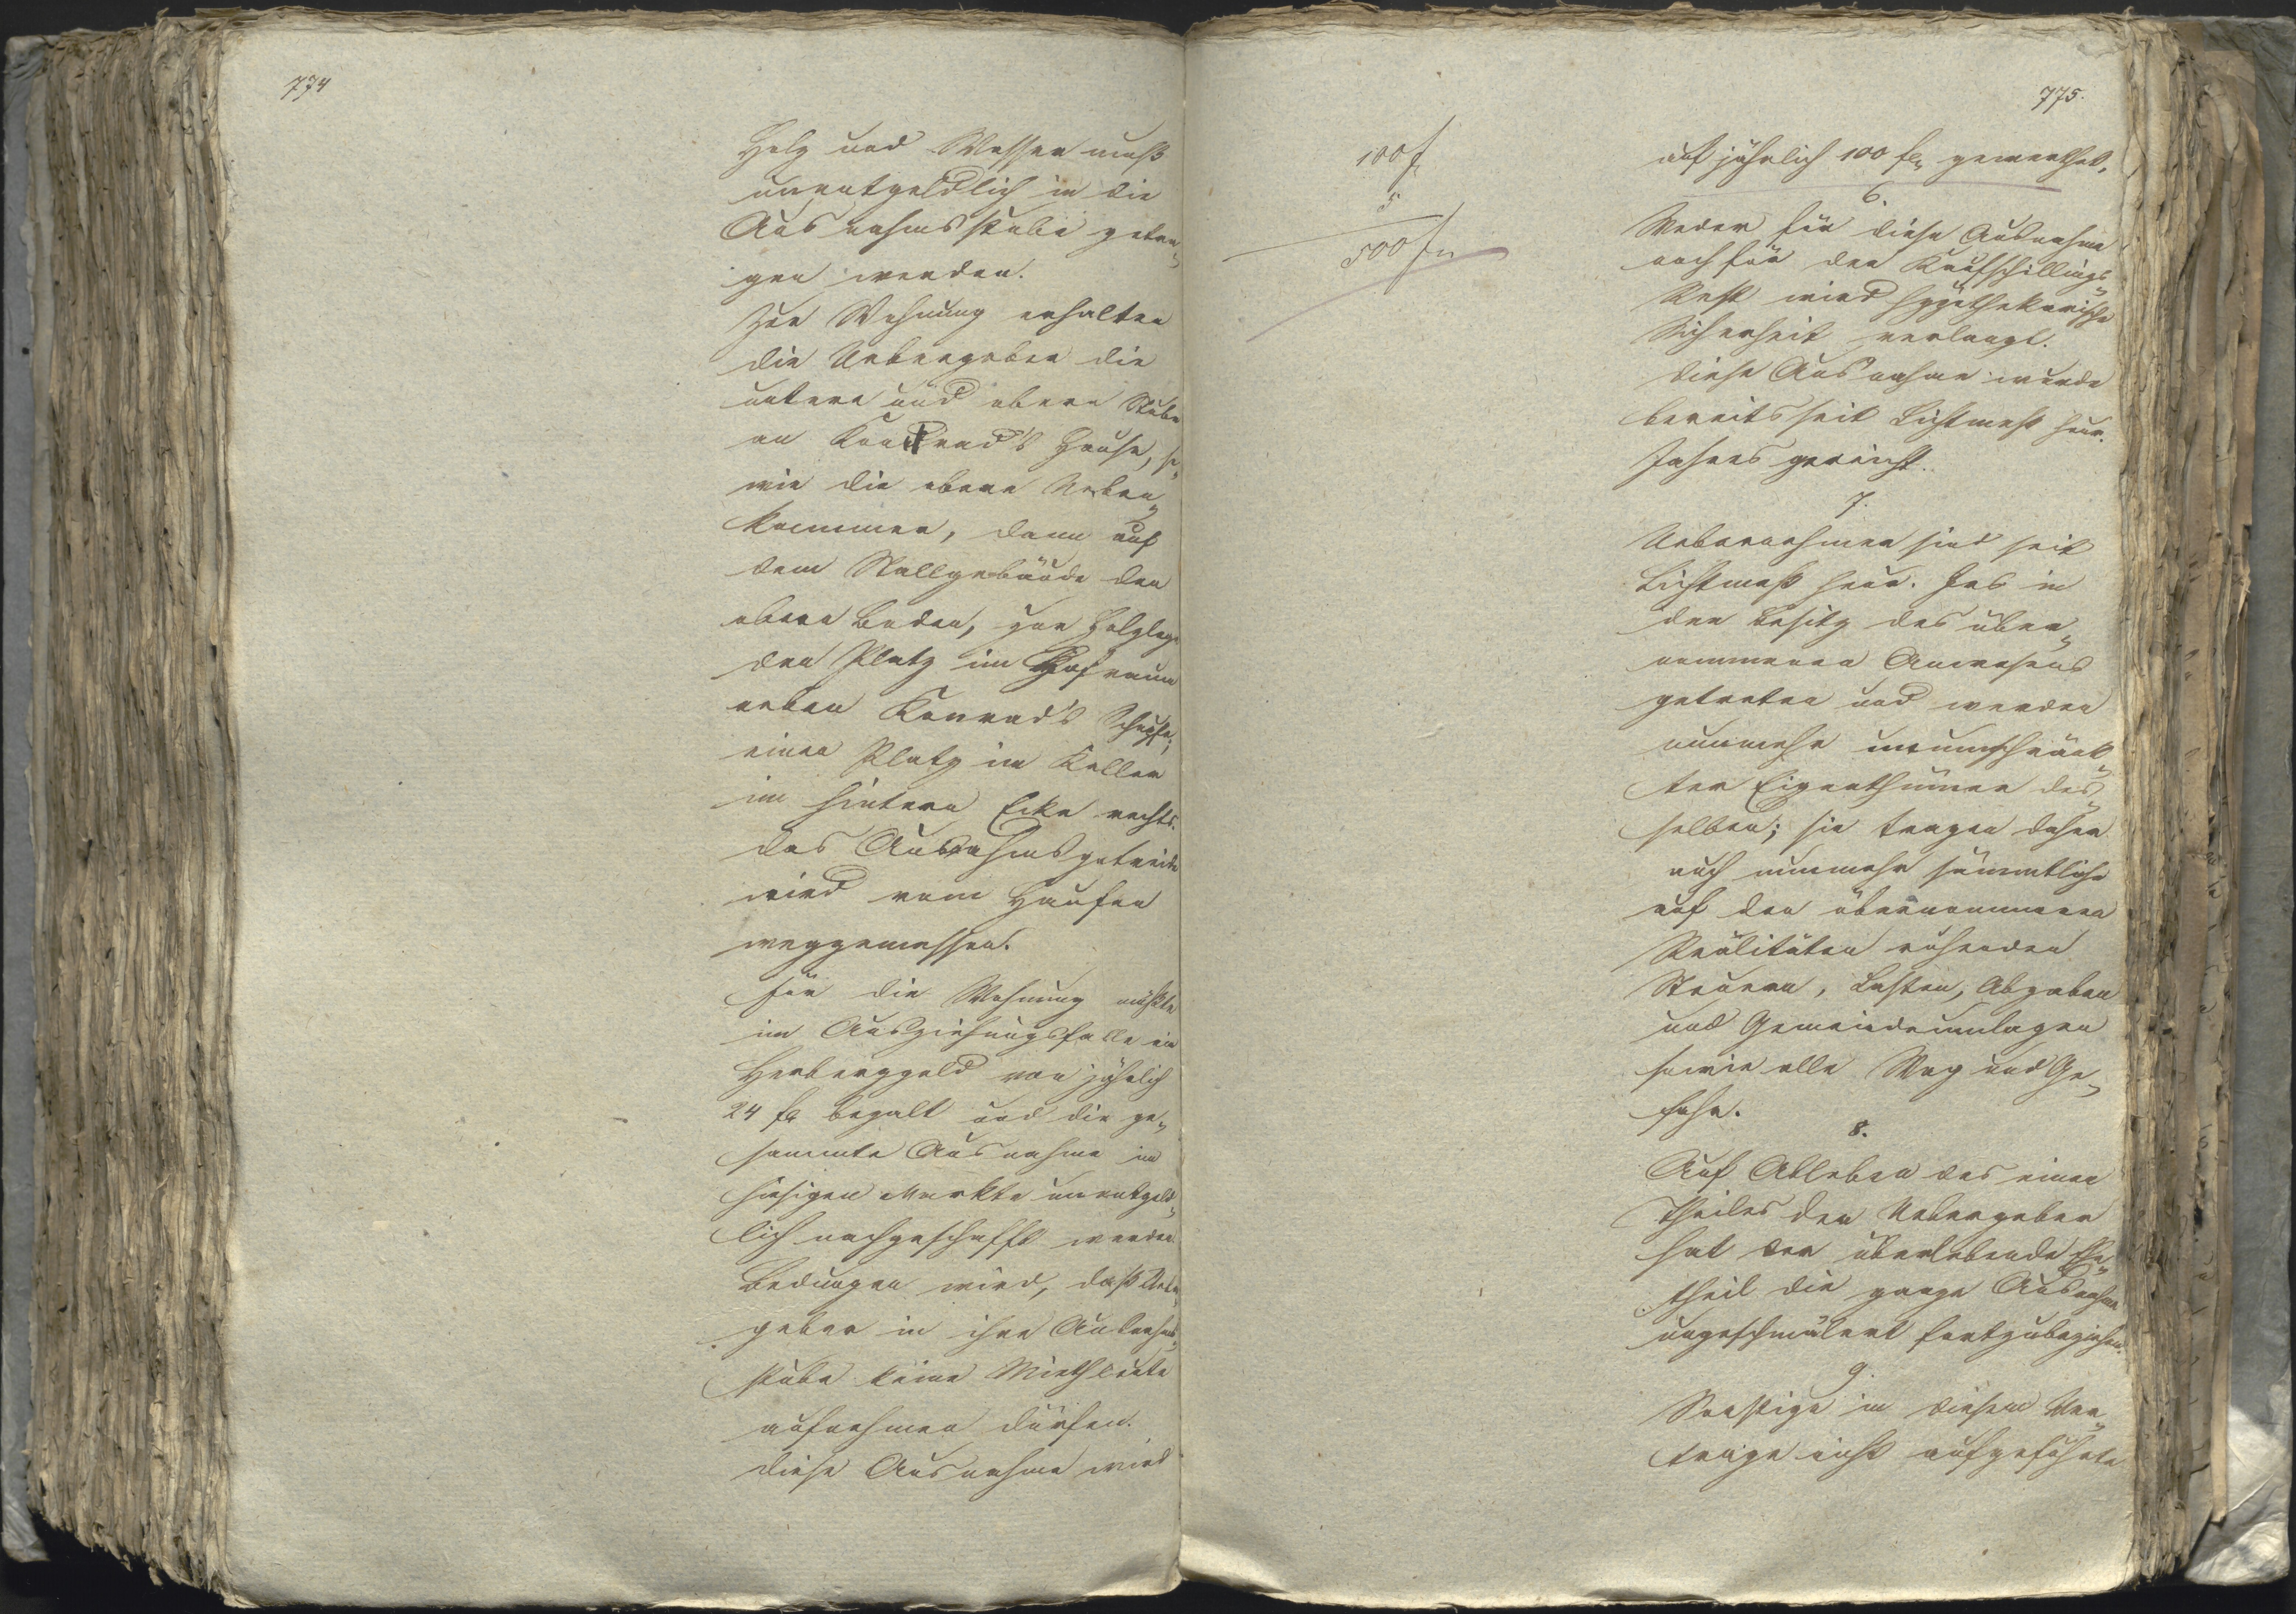 774
Holz und Wasser muß
unentgeldlich in die
Ausnahmsstube getra„
gen werden.
Zur Wohnung erhalten
die Uebergeber die
untere und obere Stube
an Konrad's Hause, so„
wie die obere Neben„
kammer, dann auf
dem Stallgebäude den
obern Boden, zur Holzlege
den Platz im Hofraum
neben Konrad's Schupfe,
einen Platz im Keller
im hintern Ecke rechts.
das Ausnahmsgetreide
wird vom Haufen
weggemessen.
für die Wohnung müßte
im Ausziehungsfalle ein
Herberggeld von jährlich
24 fl bezalt und die ge„
sammte Ausnahme im
hiesigen Markte unentgeld„
lich nachgeschafft werden.
Bedungen wird, daß Ueber„
geber in ihre Ausnahms„
stube keine Miethleute
aufnehmen dürfen.
diese Ausnahme wird
775.
100 f
5
500 fl
auf jährlich 100 fl gewerthet.
6.
Weder für diese Ausnahme
noch für den Kaufschillings„
Rest wird hypothekarische
Sicherheit verlangt.
diese Ausnahme wurde
bereits seit Lichtmeß heur.
Jahres gereicht.
7.
Uebernehmer sind seit
Lichtmeß heur. Jrs in
den Besitz des über„
nommenen Anwesens
getreten und werden
nunmehr unumschränk„
ter Eigenthümer des„
selben; sie tragen daher
auch nunmehr sämmtliche
auf den übernommenen
Realitäten ruhenden
Steuern, Lasten, Abgaben
und Gemeindeumlagen
sowie alle Wag und Ge„
fahr.
8.
Auf Ableben des einen
Theiles der Uebergeber
hat der überlebende Ehe„
theil die ganze Ausnahme
ungeschmälert fortzubeziehen.
9.
Sonstige in diesem Ver„
trage nicht aufgeführte